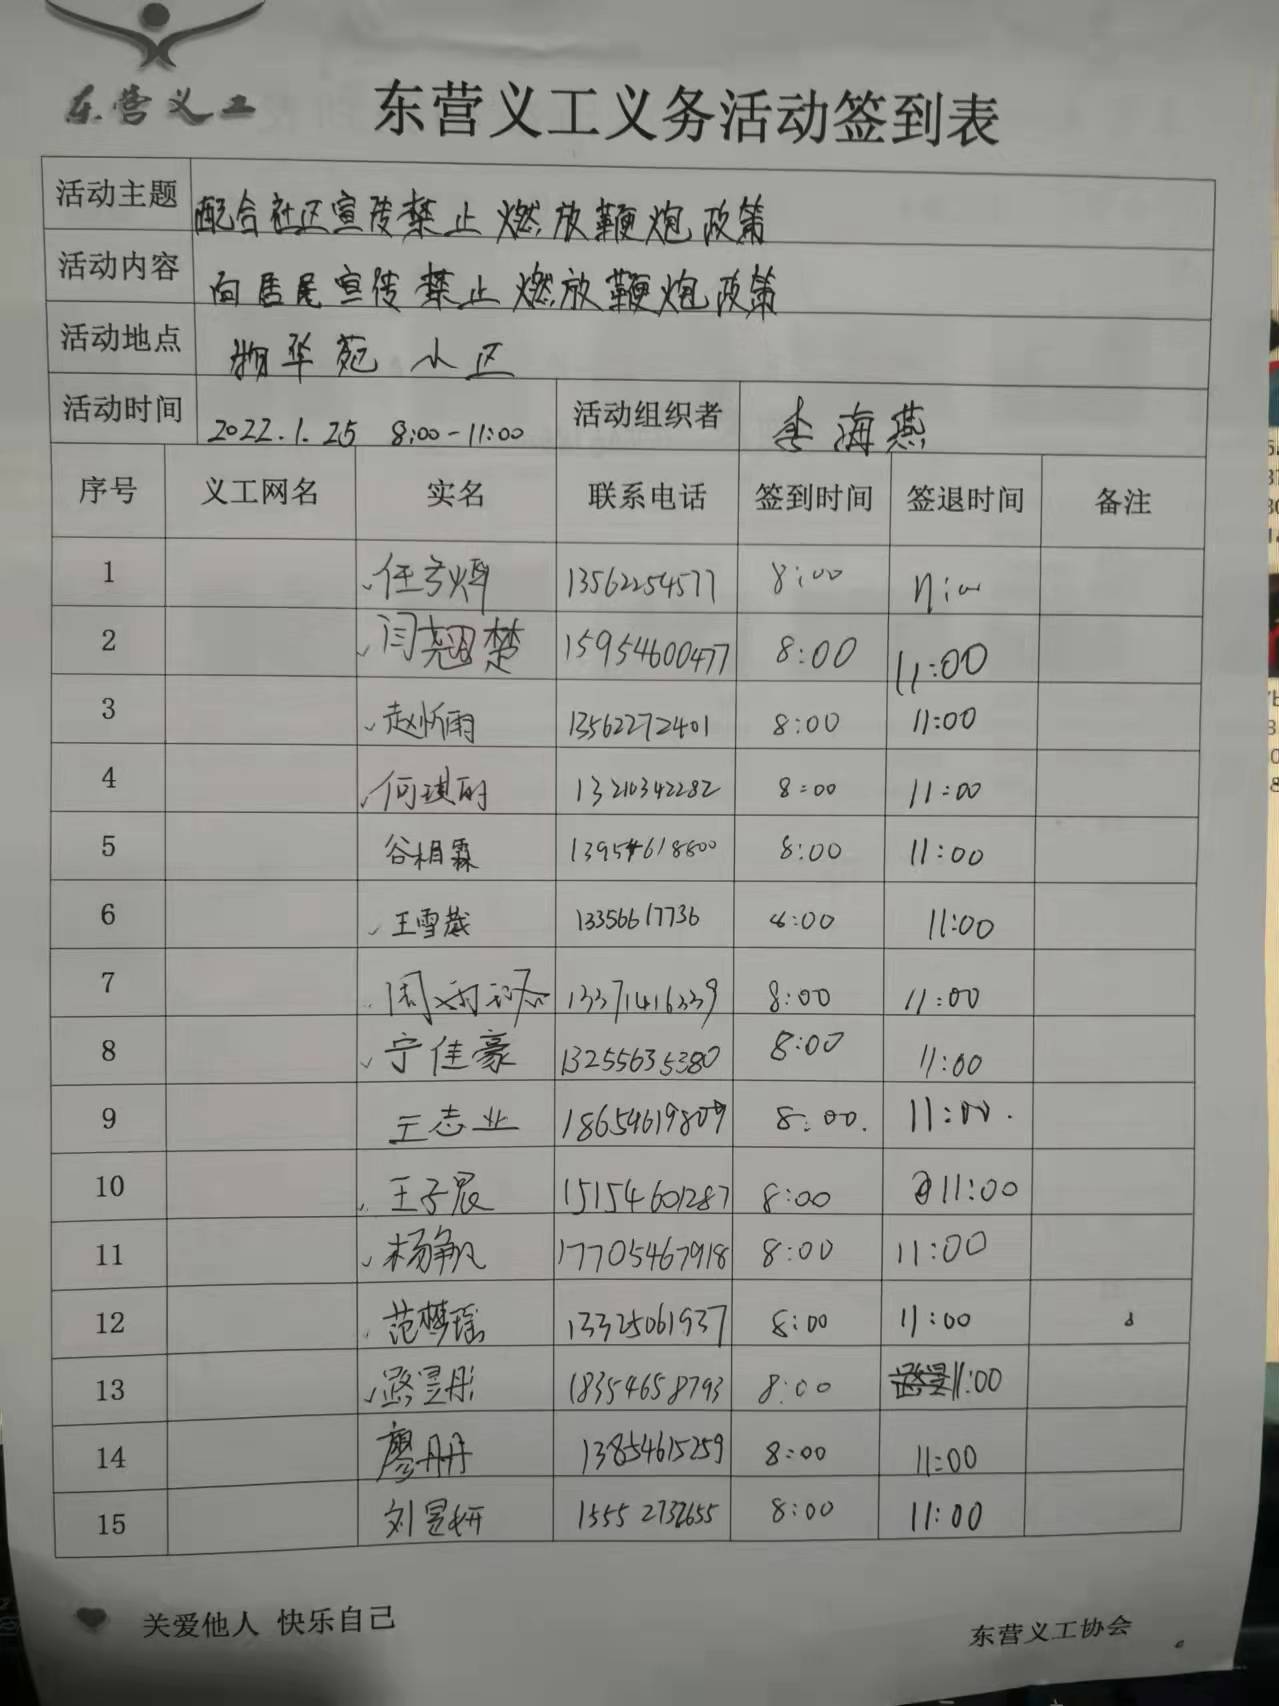 东营义工
东营义工义务活动签到表
活动主题 配合社区宣传禁止燃放鞭炮政策
活动内容 向居民宣传禁止燃放鞭炮政策
活动地点 物华苑小区
活动时间 2022.1.25 8:00-11:00 活动组织者 李海燕
序号 义工网名 实名 联系电话 签到时间 签退时间 备注
1 13562254577 8:00
2 闫翘楚 15954600477 8:00 11:00
3 赵忻雨 13562272401 8:00 11:00
4 何琪 13210342282 8:00 11:00
5 谷相霖 13954618800 8:00 11:00
6 王雪 13356617736 8:00 11:00
7 周 13371416339 8:00 11:00
8 宁佳豪 13255635380 8:00 11:00
9 王志业 18654619809 8:00. 11:00.
10 王子辰 15154601287 8:00 11:00
11 杨帆 17705467918 8:00 11:00
12 范梦瑶 13325061937 8:00 11:00
13 路昱彤 18354658793 8:00 11:00
14 廖丹丹 13854615259 8:00 11:00
15 刘昱妍 15552732655 8:00 11:00
关爱他人 快乐自己
东营义工协会